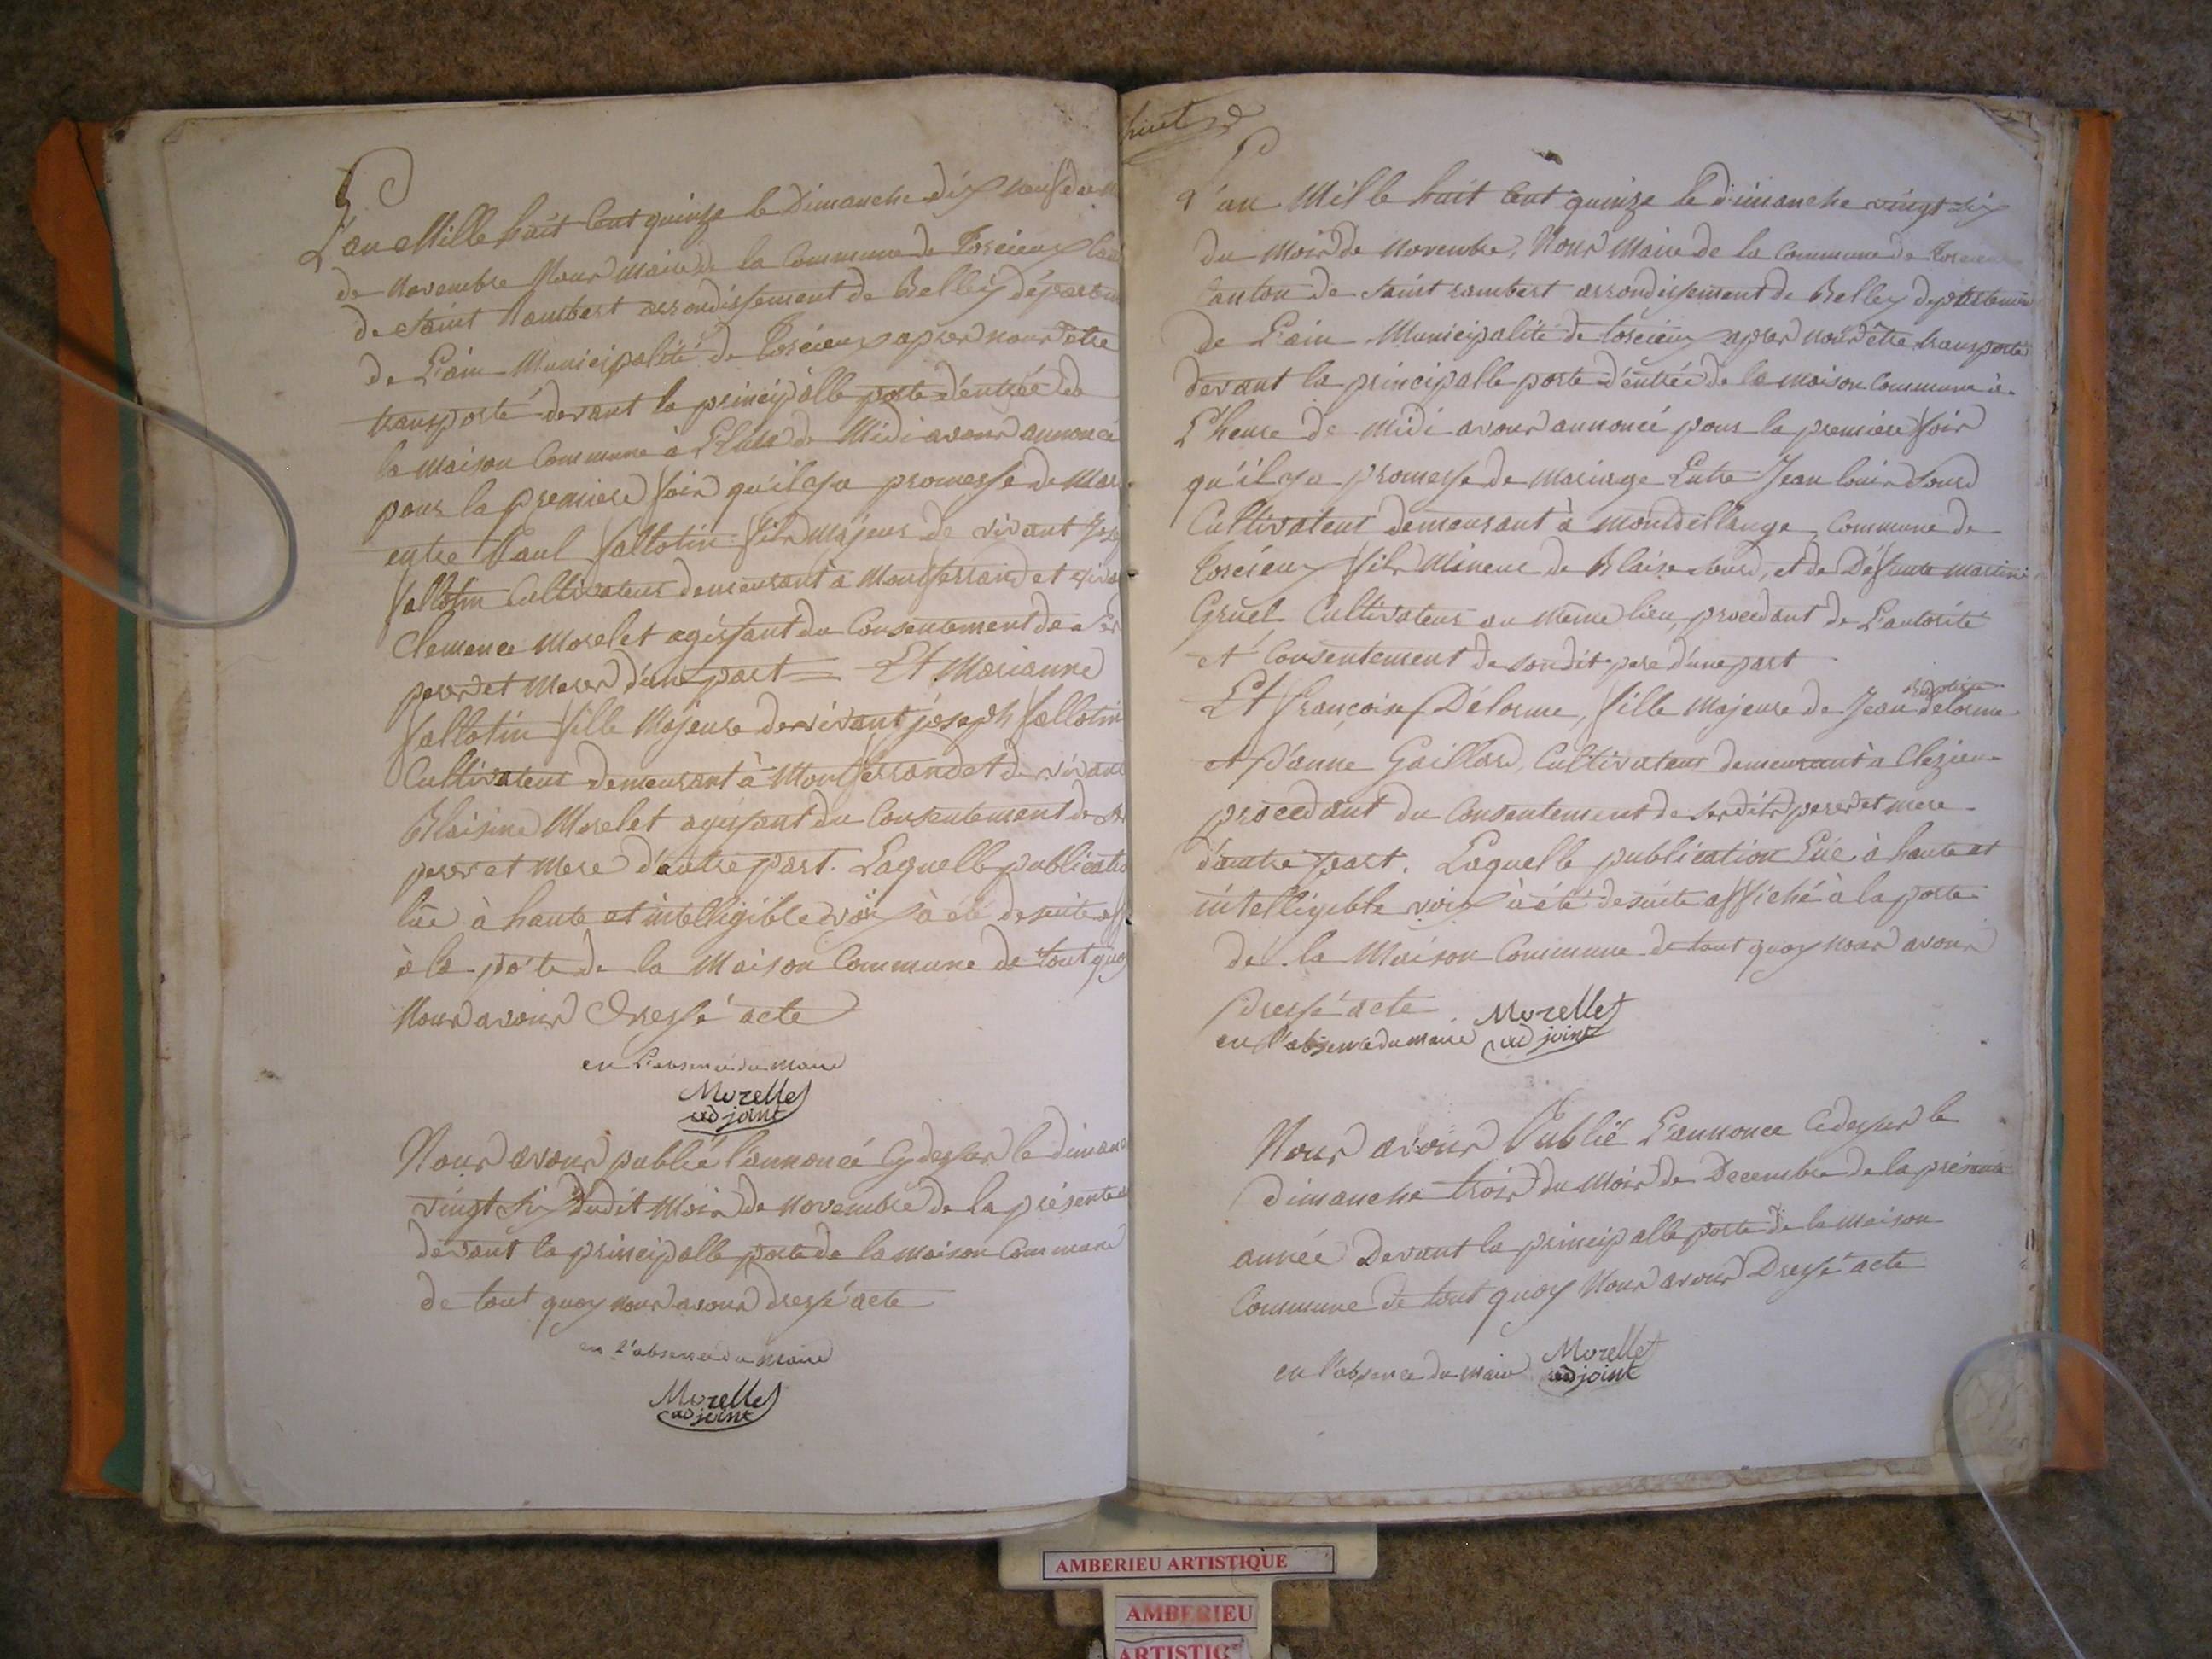 L'an Mille huit Cent quinze le Dimanche dix neuf du
de Novembre Nous maire de la Commune de Torcieux
de Saint Rambert arrondissement de Belley départem
de L'ain Municipalité de Torcieux apres nous etre
transporté devant la principalle porte d'entrée de
la maison Commune à L'heure de Midi avons annoncé
pour la premiere fois qu'il y a promesse de Mar
entre Paul fallotin fils Majeur de vivant Jose
fallotin Cultivateur demeurant à Montferrand et
Clemence Morelet agissant du Consentement de
peres et Meres d'une part = Et Marianne
fallotin fille Majeure de vivant joseph fallotin
Cultivateur demeurant à Montferrand et de vivant
Blaisine Morelet agissant du Consentement de
peres et Mere d'autre part. Laquelle publicatio
lue à haute et intelligible voix à été de suite aff
à la porte de la Maison Commune de tout quoy
Nous avons Dressé acte
en L'absence du maire
Morellet
adjoint
Nous avons publié l'annonce Cydessus le diman
vingt six dudit Mois de Novembre de la présente
devant la principalle porte de la maison Commune
de tout quoy nous avons dressé acte
en l'absence du maire
Morellet
adjoint
huit
L'an Mille huit Cent quinze le dimanche vingt six
du Mois de Novembre, Nous Maire de la Commune de Torcieux
Canton de saint rambert arrondissement de Belley departement
de L'ain Municipalité de torcieux apres nous être transporté
devant la principalle porte d'entrée de la maison Commune à
L'heure de Midi avons annoncé pour la premiere fois
qu'il y a promesse de Mariage Entre Jean louis Sourd
Cultivateur demeurant à montdidange, Commune de
Torcieux fils Mineur de Blaise Sourd, et de Défunte marine
Gruel Cultivateur au même lieu, procedant de L'autorité
et Consentement de sondit pere d'une part
baptiste
Et françoise Délorme, fille Majeure de Jean delorme
et d'anne Gaillard, Cultivateur demeurant à Clezieu
procedant du Consentement de ses dits peres et mere
d'autre part. Laquelle publication Lüe à haute et
intelligible voix à été de suite affiché à la porte
de la Maison Commune de tout quoy nous avons
Dressé acte
en l'absence du maire Morellet
adjoint
Nous avons Publié L'annonce Cydessus le
dimanche trois du Mois de Decembre de la présente
année Devant la principalle porte de la maison
Commune de tout quoy Nous avons Dressé acte
en l'absence du maire Morellet
adjoint
AMBERIEU ARTISTIQUE
AMBERIEU
ARTISTIQ